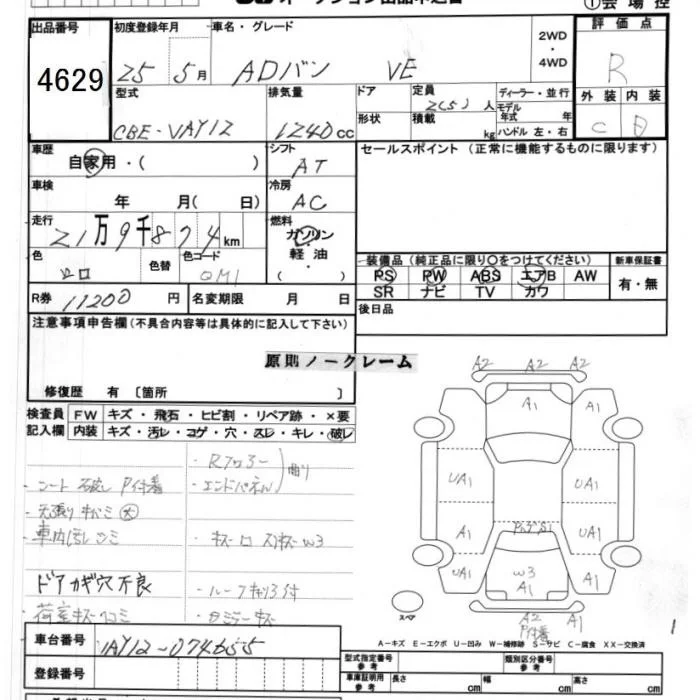 出品番号 初度登録年月 車名・グレード 2WD・4WD 評価点
4629 25 5月 ADバン VE R
型式 排気量 ドア 定員 2(5)人 ディーラー・並行 外装 内装
CBE-VAY12 1240cc 形状 積載 kg モデル年式 年 ハンドル 左・右 C D
車歴 シフト セールスポイント(正常に機能するものに限ります)
自家用・( ) AT
車検 冷房
年 月( 日) AC
走行 燃料
21万9千874km ガソリン・軽油・
色 色替 色コード 装備品(純正品に限り○をつけてください) 新車保証書
シロ QM1 PS PW ABS エアB AW 有・無
SR ナビ TV カワ
R券 11200円 名変期限 月 日 後日品
注意事項申告欄(不具合内容等は具体的に記入して下さい)
原則ノークレーム
修復歴 有 [箇所 ]
検査員 FW キズ・飛石・ヒビ割・リペア跡・×要
記入欄 内装 キズ・汚レ・コゲ・穴・スレ・キレ・破レ
・Rフロアー 曲り
・シート破レ 付着 ・エンドパネル
・天張りキバミ 大
・車内汚レシミ ・キズ W3
ドアカギ穴不良 ・ルーフキャリア付
荷室キズ
A2 A2 A2
A1 A1
UA1 UA1
A1 UA1
UA1 W3 A1 A1
A2 A1
付着
スペア
1
A-キズ E-エクボ U-凹み W-補修跡 S-サビ C-腐食 XX-交換済
車台番号 VAY12-074655
登録番号
型式指定番号 参考 類別区分番号 参考
車庫証明用 参考 長さ cm 幅 cm 高さ cm